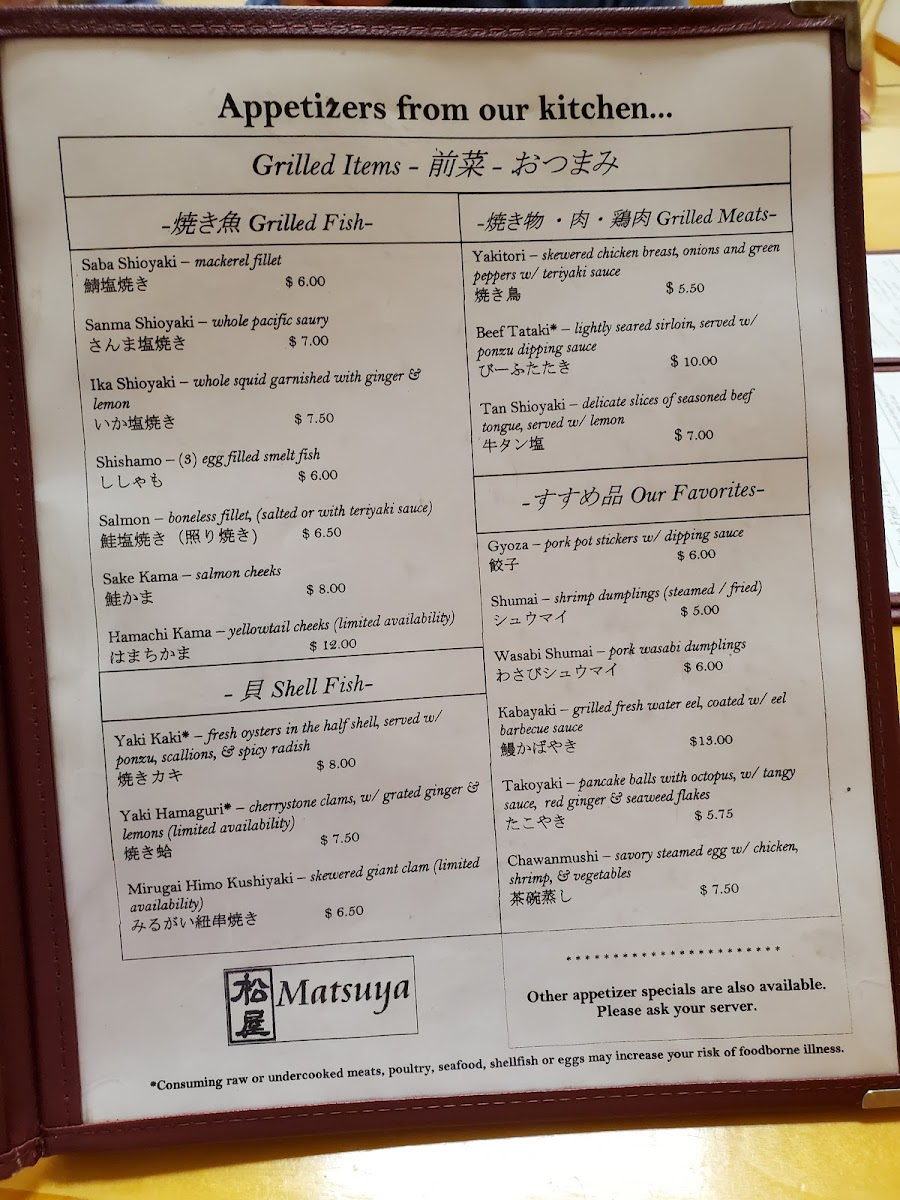 Appetizers from our kitchen...
Grilled Items - 前菜 - おつまみ
-焼き魚 Grilled Fish-
Saba Shioyaki – mackerel fillet
鯖塩焼き $ 6.00
Sanma Shioyaki – whole pacific saury
さんま塩焼き $ 7.00
Ika Shioyaki – whole squid garnished with ginger &
lemon
いか塩焼き $ 7.50
Shishamo – (3) egg filled smelt fish
ししゃも $ 6.00
Salmon – boneless fillet, (salted or with teriyaki sauce)
鮭塩焼き (照り焼き) $ 6.50
Sake Kama – salmon cheeks
鮭かま $ 8.00
Hamachi Kama – yellowtail cheeks (limited availability)
はまちかま $ 12.00
- 貝 Shell Fish-
Yaki Kaki* – fresh oysters in the half shell, served w/
ponzu, scallions, & spicy radish
焼きカキ $ 8.00
Yaki Hamaguri* – cherrystone clams, w/ grated ginger &
lemons (limited availability)
焼き蛤 $ 7.50
Mirugai Himo Kushiyaki – skewered giant clam (limited
availability)
みるがい紐串焼き $ 6.50
-焼き物 ・肉・鶏肉 Grilled Meats-
Yakitori – skewered chicken breast, onions and green
peppers w/ teriyaki sauce
焼き鳥 $ 5.50
Beef Tataki* – lightly seared sirloin, served w/
ponzu dipping sauce
びーふたたき $ 10.00
Tan Shioyaki – delicate slices of seasoned beef
tongue, served w/ lemon
牛タン塩 $ 7.00
-すすめ品 Our Favorites-
Gyoza – pork pot stickers w/ dipping sauce
餃子 $ 6.00
Shumai – shrimp dumplings (steamed / fried)
シュウマイ $ 5.00
Wasabi Shumai – pork wasabi dumplings
わさびシュウマイ $ 6.00
Kabayaki – grilled fresh water eel, coated w/ eel
barbecue sauce
鰻かばやき $13.00
Takoyaki – pancake balls with octopus, w/ tangy
sauce, red ginger & seaweed flakes
たこやき $ 5.75
Chawanmushi – savory steamed egg w/ chicken,
shrimp, & vegetables
茶碗蒸し $ 7.50
松屋 Matsuya
***********************
Other appetizer specials are also available.
Please ask your server.
*Consuming raw or undercooked meats, poultry, seafood, shellfish or eggs may increase your risk of foodborne illness.